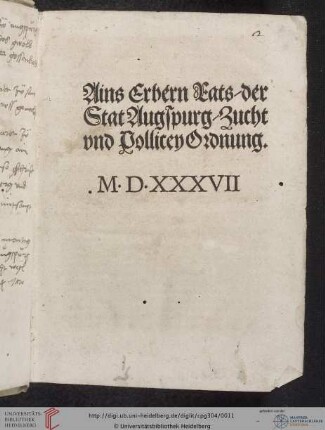 Ains Erbern Rats der
Stat Augspurg / Zucht
vnd Pollicey Ordnung.
. M · D · XXXVII
UNIVERSITÄTS-
BIBLIOTHEK
HEIDELBERG
http://digi.ub.uni-heidelberg.de/diglit/cpg304/0011
© Universitätsbibliothek Heidelberg